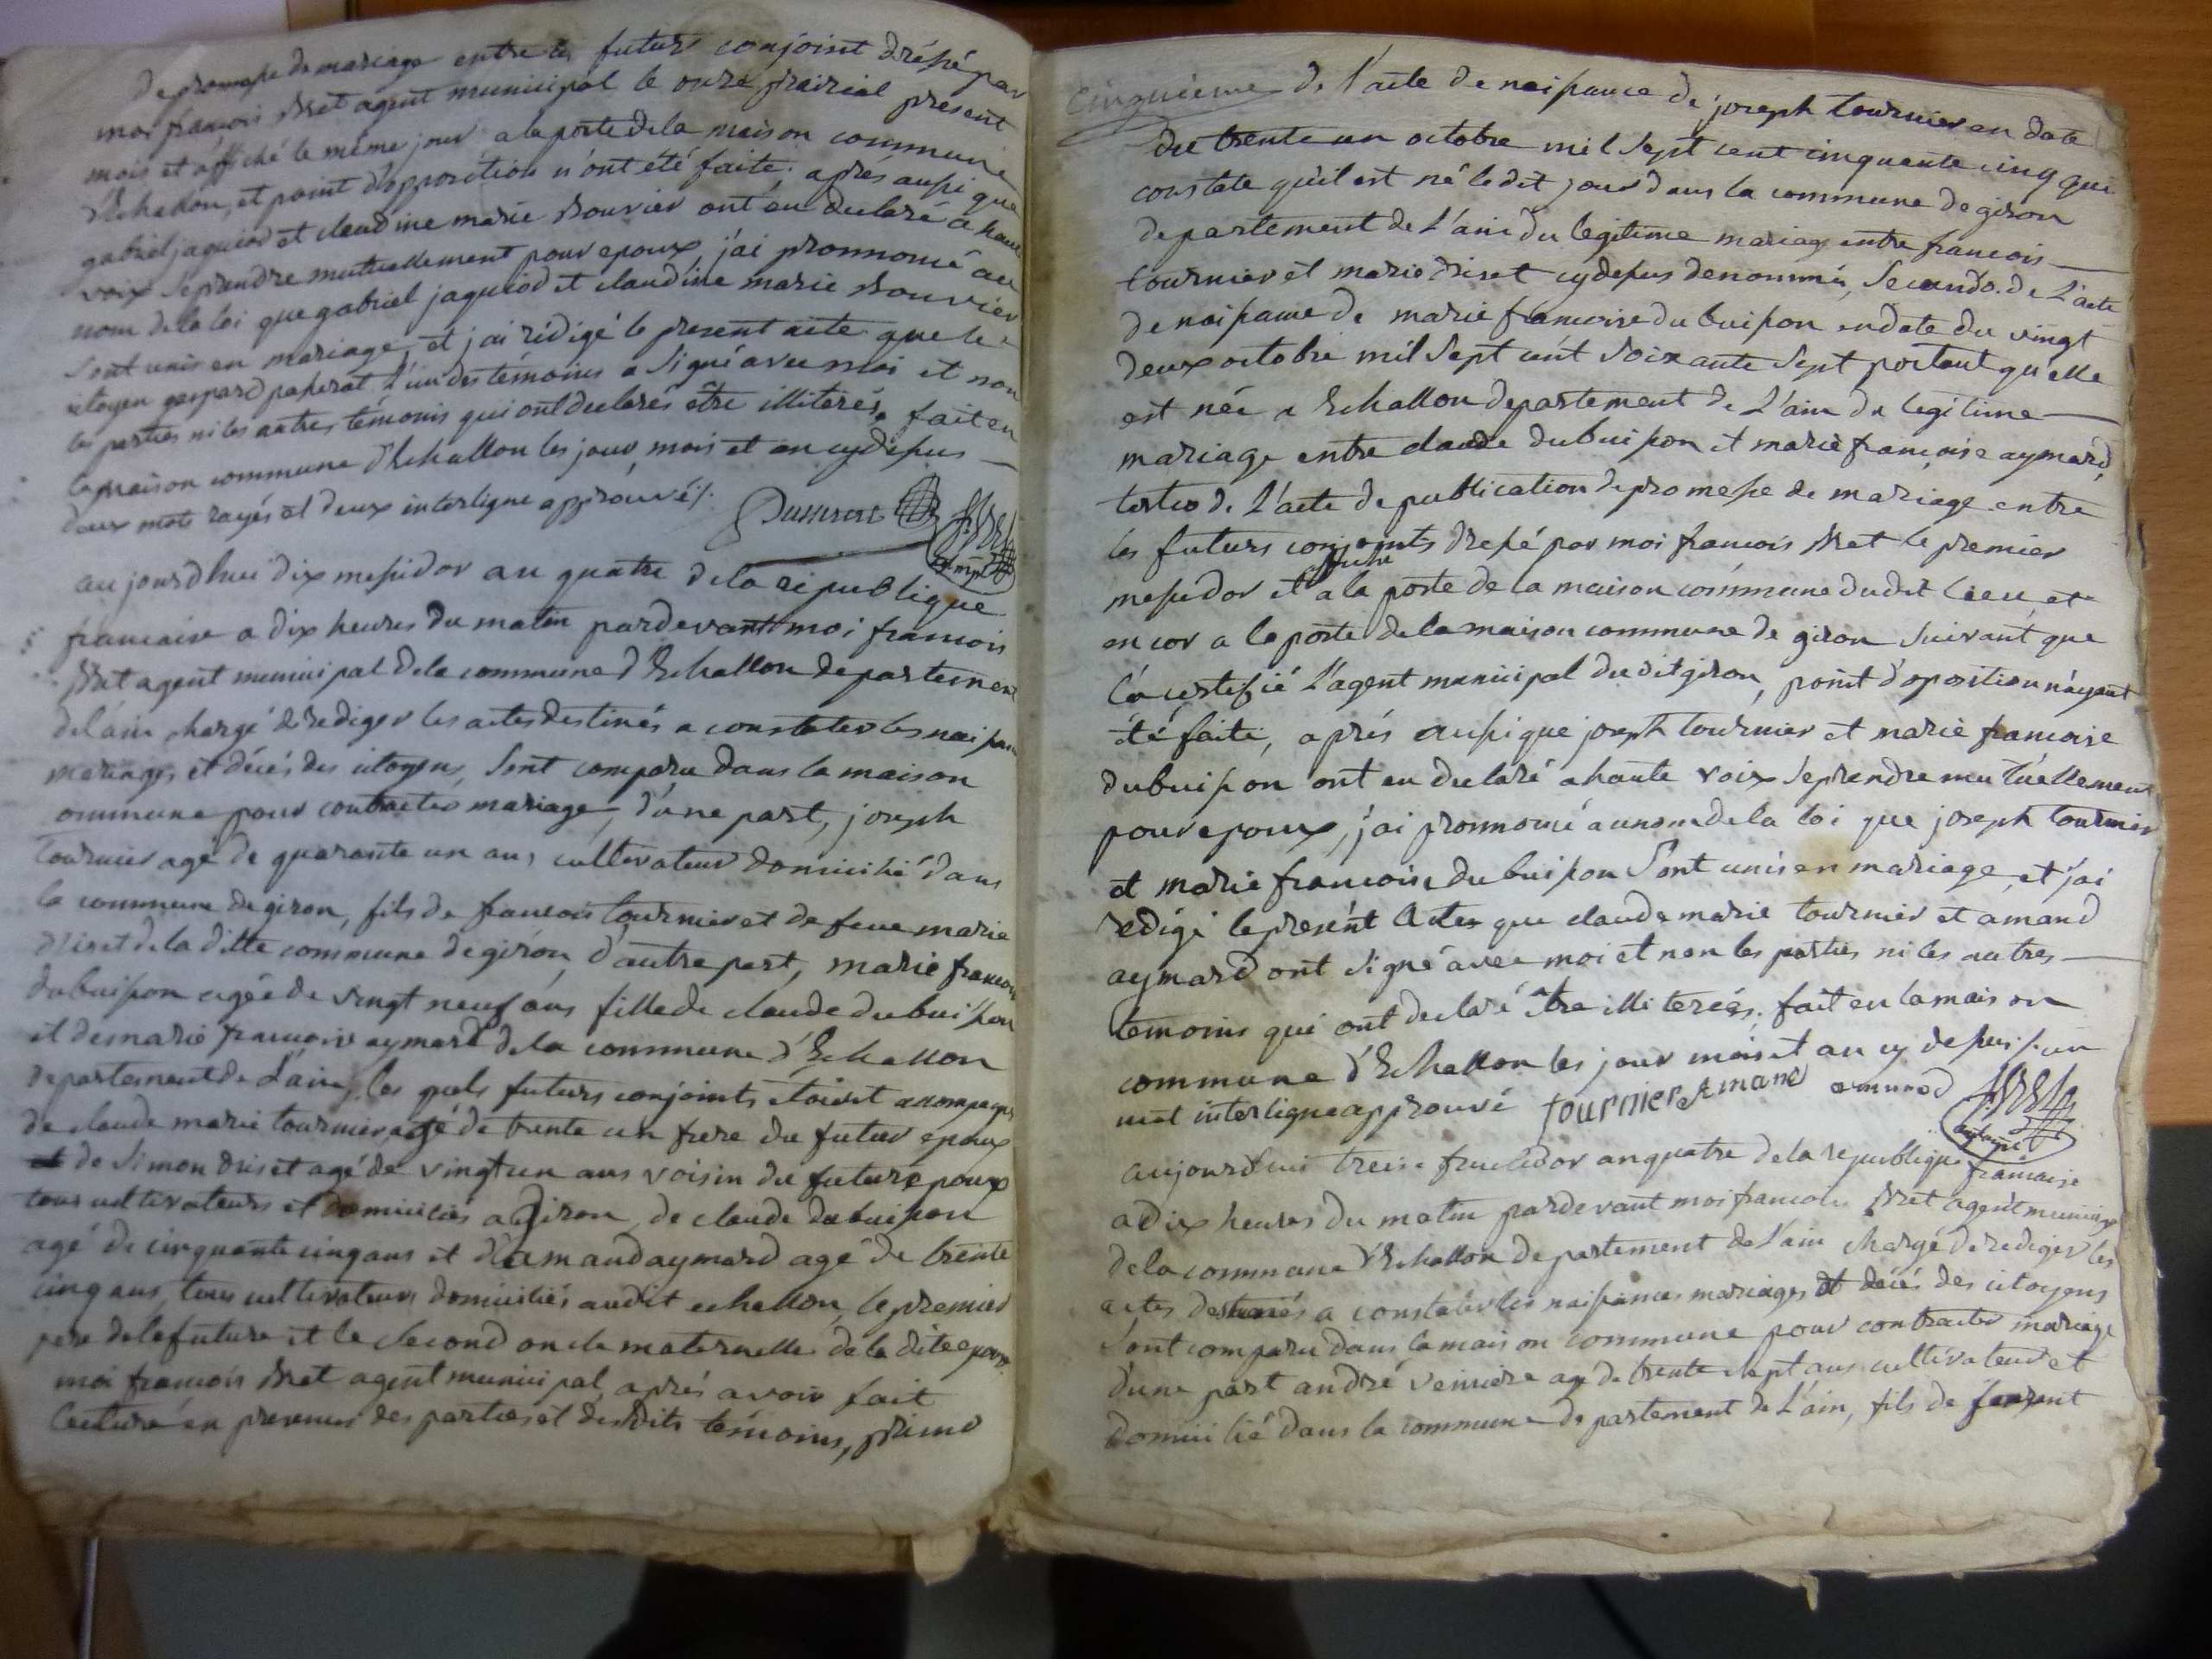 de promesse de mariage entre les futurs conjoint dréssé par
moi francois Bret agent municipal le onze prairial present
mois et affiché le même jour a la porte de la maison commune
d'Echallon, et point d'opposition n'ont été faite. aprés aussi que
gabriel jaquiod et claudine marie Bouvier ont eu declaré a haute
voix se prendre mutuellement pour epoux, j'ai pronnoncé au
nom de la loi que gabriel jaquiod et claudine marie Bouvier
sont unis en mariage, et j'ai rédigé le present acte que le
citoyen gaspard passerat l'un des témoins a signé avec moi et non
les parties ni les autres témoins qui ont declarés être illiterés. fait en
la maison commune d'Echallon les jour, mois et an cy dessus
deux mots rayés et deux interligne approuvés.
aujourdhui dix messidor an quatre de la republique
francaise a dix heures du matin pardevant moi francois
Bret agent municipal de la commune d'Echallon departement
de l'ain chargé de rediger les actes destinés a constater les naissance
mariages et décés des citoyens, sont comparu dans la maison
commune pour contracter mariage, d'une part, joseph
tournier agé de quarante un ans, cultivateur domicilié dans
la commune de giron, fils de francois tournier et de feue marie
driset de la ditte commune de giron, d'autre part, marie francoise
dubuisson agée de vingt neuf ans fille de claude dubuisson
et de marie francoise aymard de la commune d'Echallon
departement de L'ain, les quels futurs conjoints etoient accompagnés
de claude marie tournier agé de trente un frere du futur epoux
et de Simon driset agé de vingt un ans voisin du futur epoux
tous cultivateurs et domiciliés a Giron, de claude dubuisson
agé de cinquante cinq ans et d'amand aymard agé de trente
cinq ans, tous cultivateurs domiciliés audit echallon, le premier
pere de la future et le second oncle maternelle de la dite epouse
moi francois Bret agent municipal, aprés avoir fait
lecture en presence des parties et desdits témoins, primo
Cinquieme de l'acte de naissance de joseph tournier en date
du trente un octobre mil sept cent cinquante cinq qui
constate qu'il est né ledit jour dans la commune de giron
departement de L'ain du legitime mariage entre francois
tournier et marie driset cy dessus denommés, Secundo. de L'acte
de naissance de marie francoise dubuisson en date du vingt
deux octobre mil sept cent soixante sept portant qu'elle
est née a Echallon departement de L'ain du legitime
mariage entre claude dubuisson et marie francoise aymard,
tertio de L'acte de publication de promesse de mariage entre
les futurs conjoints dressé par moi francois Bret le premier
affiché
messidor et a la porte de la maison commune dudit lieu, et
encor a la porte de la maison commune de giron suivant que
l'a certifié L'agent municipal dudit giron, point d'oposition n'ayant
été faite, aprés aussi que joseph tournier et marie francoise
dubuisson ont eu declaré a haute voix se prendre mutuellement
pour epoux, j'ai pronnoncé au nom de la loi que joseph tournier
et marie francoise dubuisson Sont unis en mariage, et j'ai
redigé le présént acte que claude marie tournier et amand
aymard ont signé avec moi et non les parties ni les autres
temoins qui ont declaré être illiterés. fait en la maison
commune d'Echallon les jour mois et an cy dessus. un
mot interligne approuvé tournier Amand
aujourdhui treise fructidor an quatre de la republique francaise
a dix heures du matin pardevant moi francois Bret agent municipal
de la commune d'Echallon departement de L'ain chargé de rediger les
actes destinés a constater les naissances mariages et décés des citoyens
Sont comparu dans la maison commune pour contracter mariage
d'une part andré agé de trente sept ans cultivateur et
domicilié dans la commune departement de L'ain, fils de